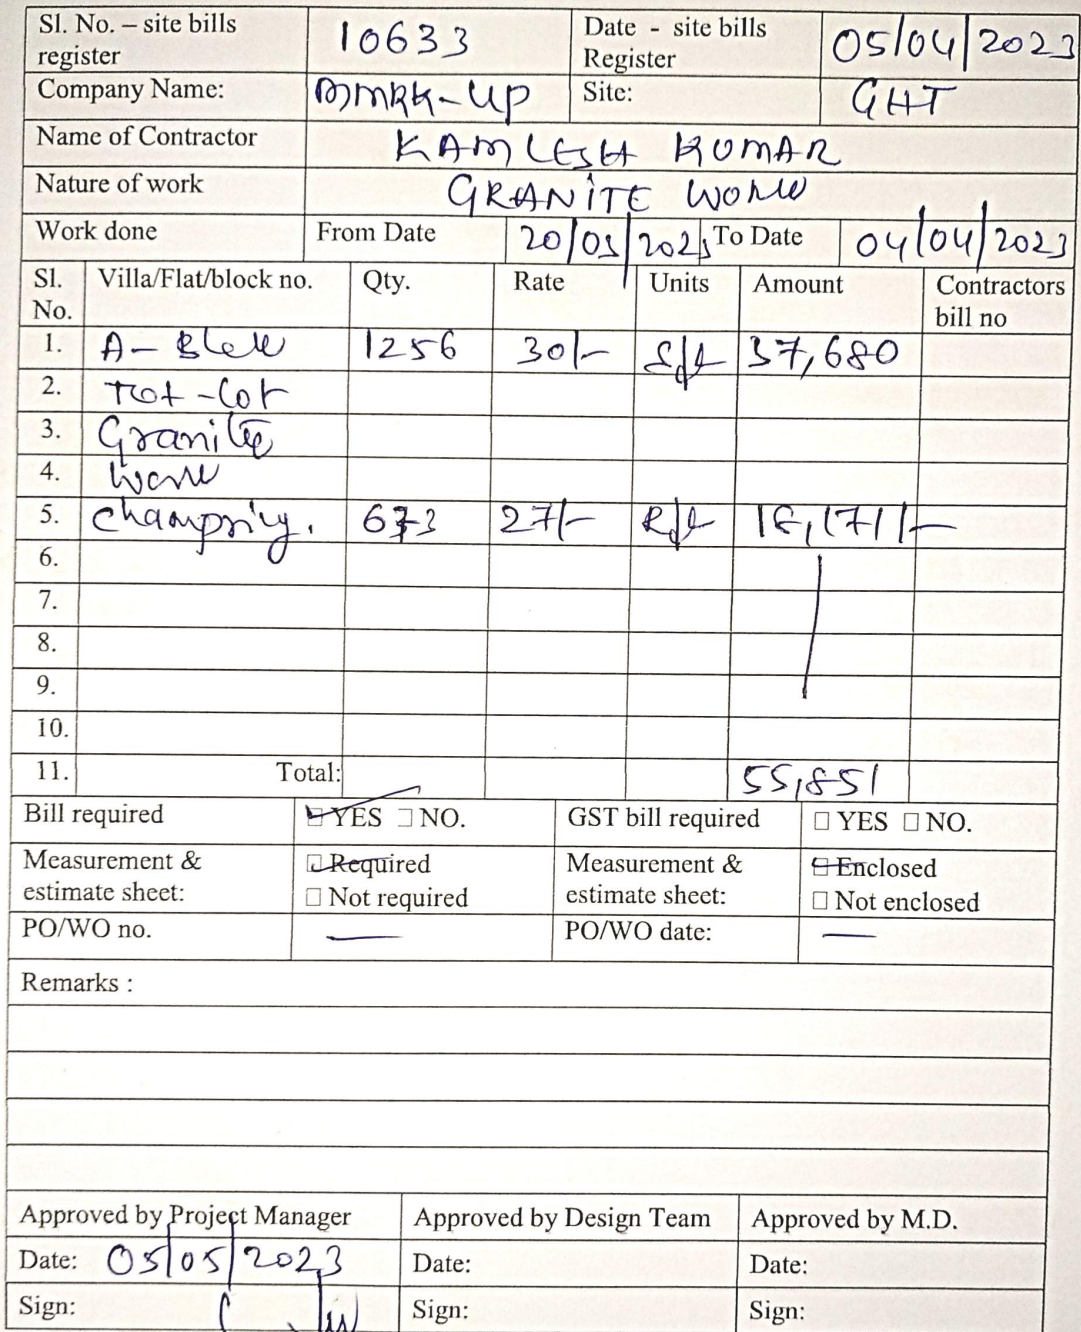 Sl. No. – site bills register 10633 Date - site bills Register 05/04/2023
Company Name: Site: GHT
Name of Contractor KAMLESH KUMAR
Nature of work GRANITE WORK
Work done From Date 20/03/2023 To Date 04/04/2023
Sl. No. Villa/Flat/block no. Qty. Rate Units Amount Contractors bill no
1. A- Block 1256 30/- Sft 37,680
2. Tot-Lot
3. Granite
4. Work
5. 673 27/- Rft 18,171/-
6.
7.
8.
9.
10.
11. Total: 55,851
Bill required YES NO. GST bill required YES NO.
Measurement & estimate sheet: Required Measurement & estimate sheet: Enclosed
Not required Not enclosed
PO/WO no. — PO/WO date: —
Remarks :
Approved by Project Manager Approved by Design Team Approved by M.D.
Date: 05/05/2023 Date: Date:
Sign: Sign: Sign: